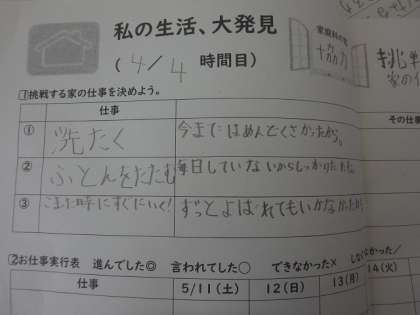 私の生活、大発見
(4/4 時間目)
家庭科の窓
協力
挑戦
家の仕
1挑戦する家の仕事を決めよう。
仕事
その仕事
① 洗たく 今まではめんどくさかったから。
② ふとんをたたむ 毎日していないからしっかりたたむ
③ こまた時にすぐにいく! ずっとよばれてもいかなかったから
2お仕事実行表 進んでした◎ 言われてした○ できなかった× しない なかった/
仕事 5/11(土) 12(日) 13(月) 14(火)